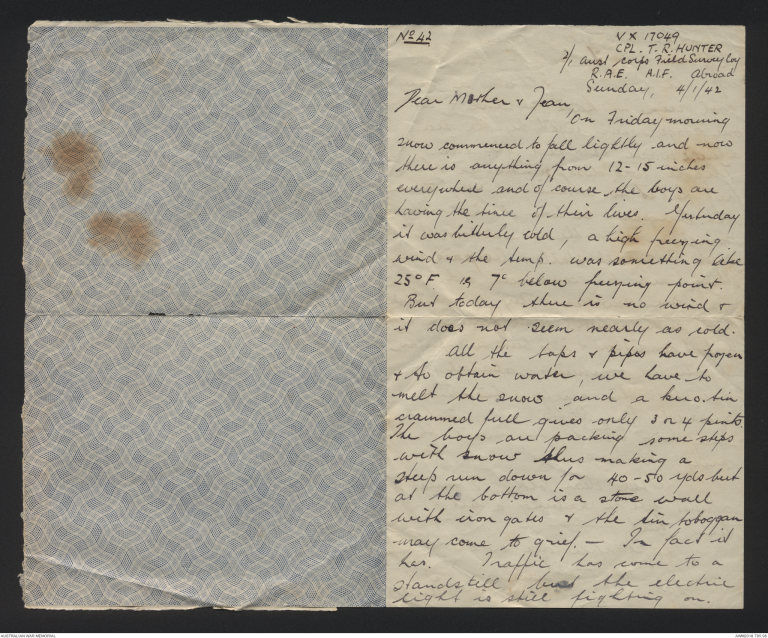 No 42
VX 17049
CPL. T. R. HUNTER
2/1 aust corps Field Survey Coy
R.A.E. A.I.F. Abroad
Sunday, 4/1/42
Dear Mother & Jean,
On Friday morning
snow commenced to fall lightly and now
there is anything from 12-15 inches
everywhere and of course the boys are
having the time of their lives. Yesterday
it was bitterly cold, a high freezing
wind & the temp. was something like
25°F is 7° below freezing point.
But today there is no wind &
it does not seem nearly as cold.
All the taps & pipes have frozen
& to obtain water, we have to
melt the snow and a kero. tin
crammed full gives only 3 or 4 pints.
The boys are packing some steps
with snow thus making a
steep run down for 40-50 yds but
at the bottom is a stone wall
with iron gates & the tin toboggan
may come to grief. - In fact it
has. Traffic has come to a
standstill but the electric
light is still fighting on.
AUSTRALIAN WAR MEMORIAL